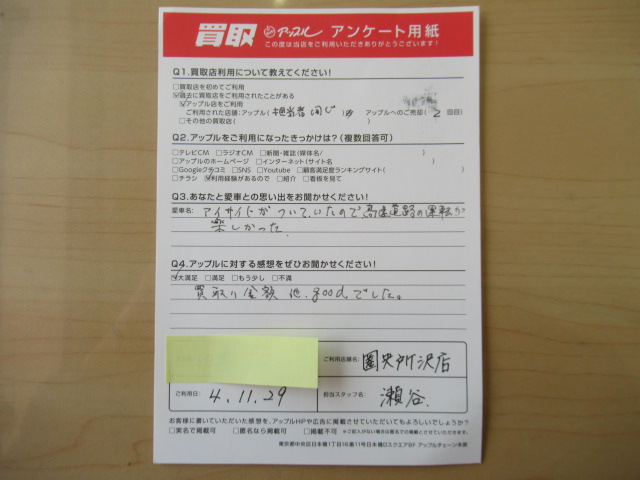 買取 アップル アンケート用紙
この度は当店をご利用いただきありがとうございます!
Q1.買取店利用について教えてください!
□買取店を初めてご利用
☑過去に買取店をご利用されたことがある
☑アップル店をご利用
ご利用された店舗:アップル( 担当者同じ )店 アップルへのご売却( 2 回目)
□その他の買取店( )
Q2.アップルをご利用になったきっかけは?(複数回答可)
□テレビCM □ラジオCM □新聞・雑誌(媒体名/ )
□アップルのホームページ □インターネット(サイト名 )
□Googleクチコミ □SNS □Youtube □顧客満足度ランキングサイト( )
□チラシ ☑利用経験があるので □紹介 □看板を見て
Q3.あなたと愛車との思い出をお聞かせください!
愛車名: アイサイトがついていたので高速道路の運転が
楽しかった.
Q4.アップルに対する感想をぜひお聞かせください!
☑大満足 □満足 □もう少し □不満
買取り金額 他、goodでした。
ご利用店舗名: 圏央所沢店
ご利用日: 4.11.29 担当スタッフ名: 瀬谷
お客様に書いていただいた感想を、アップルHPや広告に掲載させていただいてもよろしいでしょうか?
□実名で掲載可 □匿名なら掲載可 □掲載不可 ※ご記入がない場合は匿名での掲載とさせていただきます。
東京都中央区日本橋1丁目16番11号日本橋Dスクエア8F アップルチェーン本部